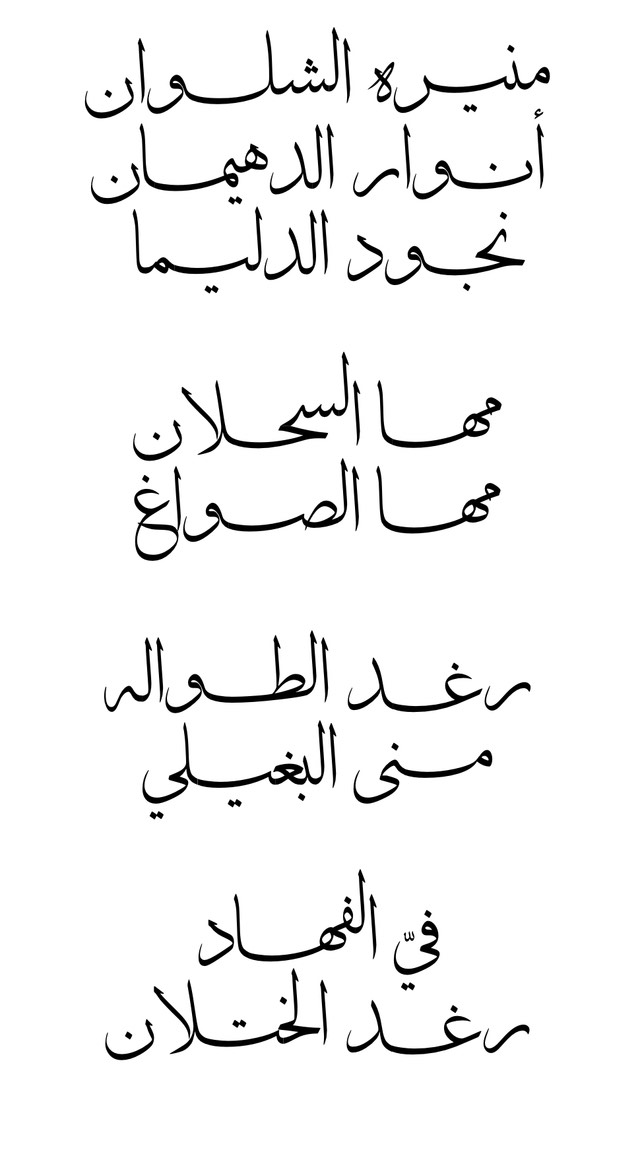 منيره الشلوان
أنوار الدهيمان
نجود الدليما
مها السحلان
مها الصواغ
رغد الطواله
منى البغيلي
فيّ الفهاد
رغد الختلان